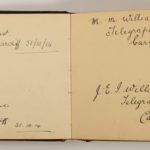 ardiff 31/10/14
31.10.14
M. M. Willia
Telegraph
Car
J. E. J. Willi
Telegra
Ca